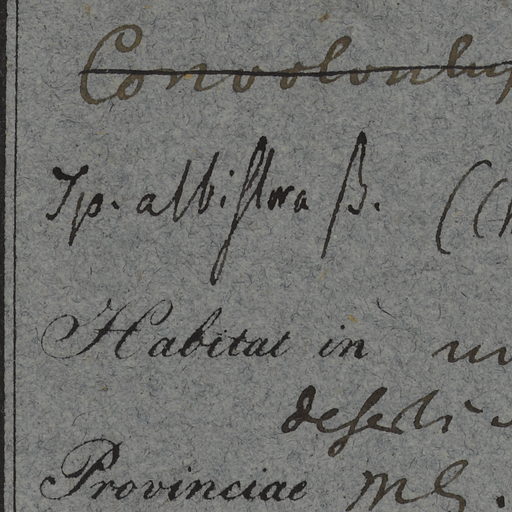 Convolvulus
Ip. albiflora β.
Habitat in
deserti
Provinciae MG.